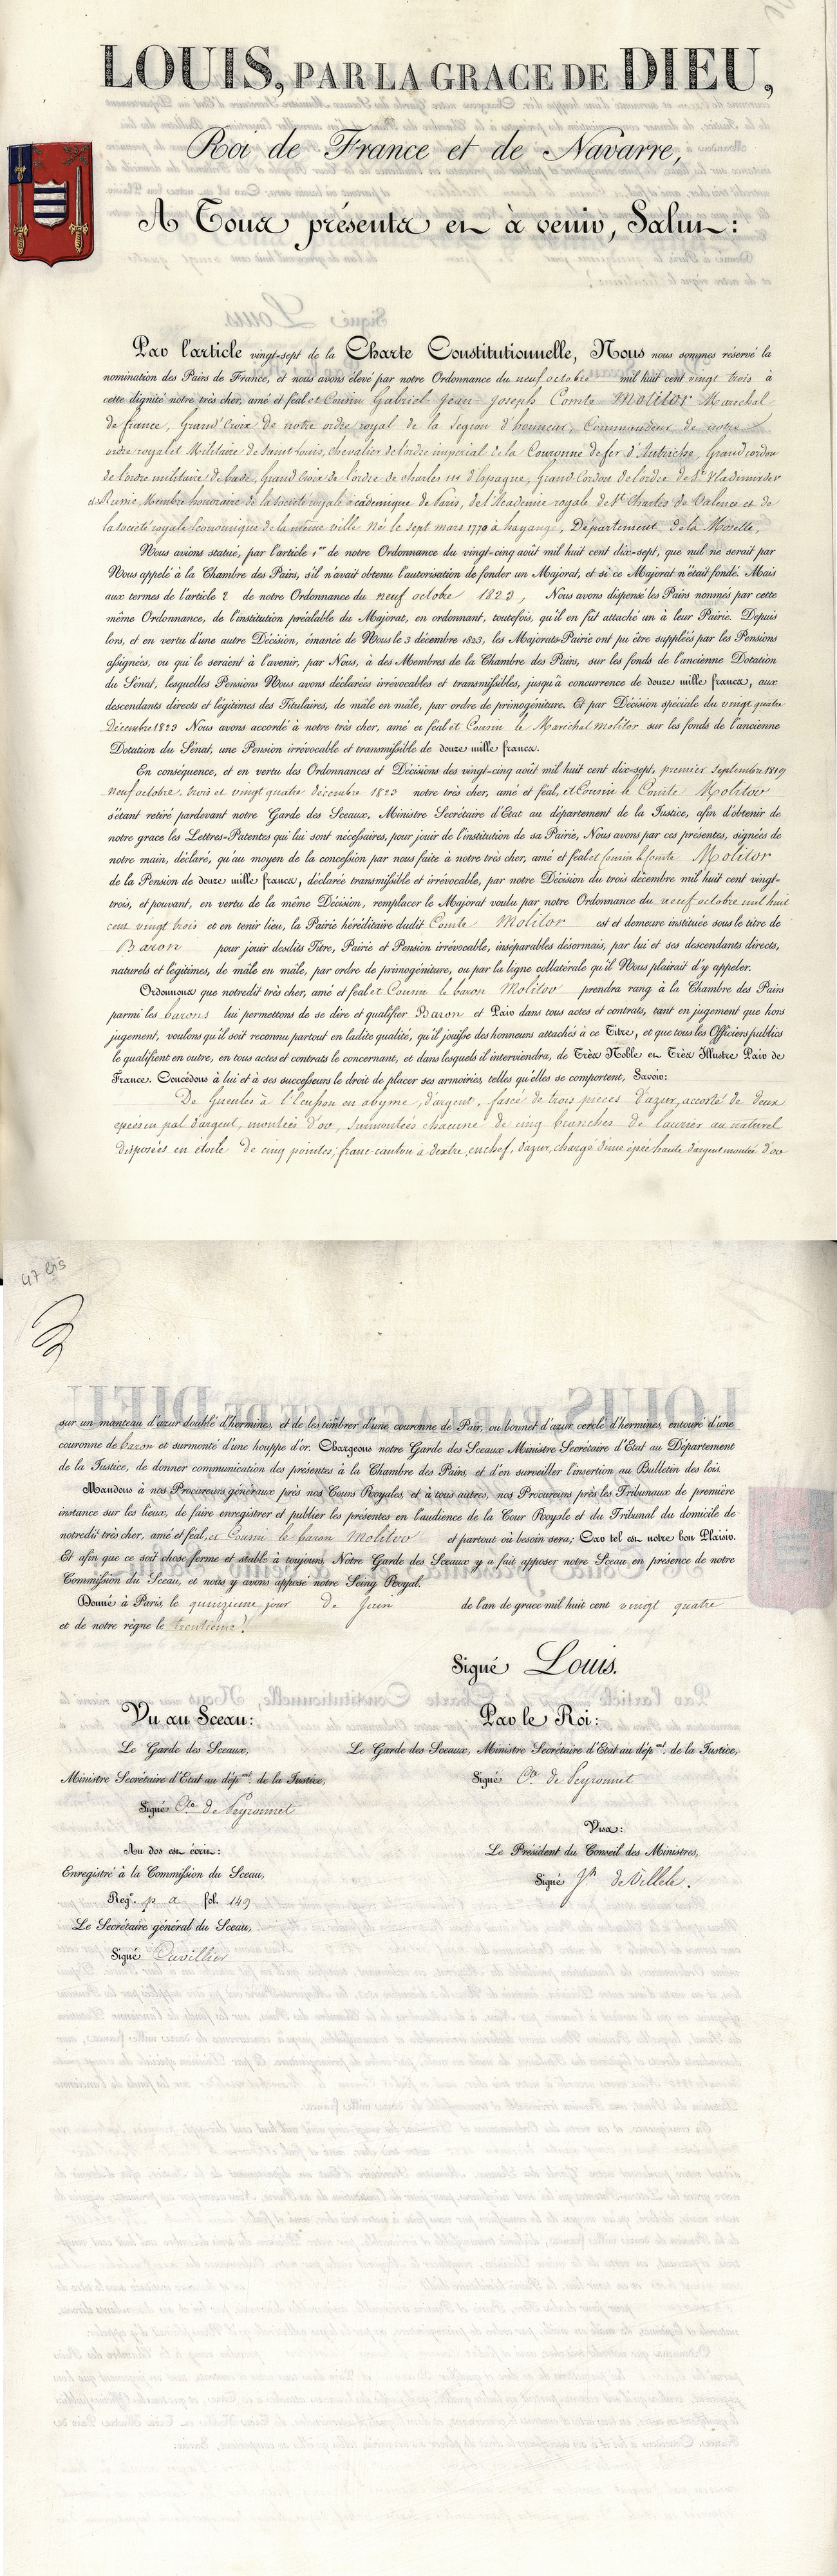 LOUIS, PAR LA GRACE DE DIEU,
Roi de France et de Navarre,
A Tous présents et à venir, Salut:
Par l'article vingt-sept de la Charte Constitutionnelle, Nous nous sommes réservé la
nomination des Pairs de France, et nous avons élevé par notre Ordonnance du neuf octobre mil huit cent vingt trois à
cette dignité notre très cher, amé et féal et Cousin Gabriel-Jean-Joseph Comte Molitor Marechal
de france, Grand Croix de notre ordre royal de la legion d'honneur, Commandeur de notre
ordre royal et Militaire de Saint Louis, chevalier de l'ordre imperial de la Couronne de fer d'Autriche, Grand cordon
de l'ordre militaire de bade, Grand Croix de l'ordre de charles III d'Espagne, Grand Cordon de l'ordre de St Vladimir de
Russie, Membre honoraire de la société royale academique de Paris, de l'Academie royale de St Charles de Valence et de
la société royale Economique de la même ville Né le sept mars 1770 à hayange, Département de la Moselle,
Nous avions statué, par l'article 1er de notre Ordonnance du vingt-cinq août mil huit cent dix-sept, que nul ne serait par
Nous appelé à la Chambre des Pairs, s'il n'avait obtenu l'autorisation de fonder un Majorat, et si ce Majorat n'était fondé. Mais
aux termes de l'article 2 de notre Ordonnance du neuf octobre 1823, Nous avons dispensé les Pairs nommés par cette
même Ordonnance, de l'institution préalable du Majorat, en ordonnant, toutefois, qu'il en fût attaché un à leur Pairie. Depuis
lors, et en vertu d'une autre Décision, émanée de Nous le 3 décembre 1823, les Majorats-Pairie ont pu être suppléés par les Pensions
assignées, ou qui le seraient à l'avenir, par Nous, à des Membres de la Chambre des Pairs, sur les fonds de l'ancienne Dotation
du Sénat, lesquelles Pensions Nous avons déclarées irrévocables et transmissibles, jusqu'à concurrence de douze mille francs, aux
descendants directs et légitimes des Titulaires, de mâle en mâle, par ordre de primogéniture. Et par Décision spéciale du vingt quatre
Décembre 1823 Nous avons accordé à notre très cher, amé et féal et Cousin le Maréchal molitor sur les fonds de l'ancienne
Dotation du Sénat, une Pension irrévocable et transmissible de douze mille francs.
En conséquence, et en vertu des Ordonnances et Décisions des vingt-cinq août mil huit cent dix-sept, premier Septembre 1819
neuf octobre, trois et vingt quatre décembre 1823 notre très cher, amé et féal, et Cousin le Comte Molitor
s'étant retiré pardevant notre Garde des Sceaux, Ministre Secrétaire d'Etat au département de la Justice, afin d'obtenir de
notre grace les Lettres-Patentes qui lui sont nécessaires, pour jouir de l'institution de sa Pairie, Nous avons par ces présentes, signées de
notre main, déclaré, qu'au moyen de la concession par nous faite à notre très cher, amé et féal et Cousin le Comte Molitor
de la Pension de douze mille francs, déclarée transmissible et irrévocable, par notre Décision du trois décembre mil huit cent vingt-
trois, et pouvant, en vertu de la même Décision, remplacer le Majorat voulu par notre Ordonnance du neuf octobre mil huit
cent vingt trois et en tenir lieu, la Pairie héréditaire dudit Comte Molitor est et demeure instituée sous le titre de
Baron pour jouir desdits Titre, Pairie et Pension irrévocable, inséparables désormais, par lui et ses descendants directs,
naturels et légitimes, de mâle en mâle, par ordre de primogéniture, ou par la ligne collatérale qu'il Nous plairait d'y appeler.
Ordonnons que notredit très cher, amé et féal et Cousin le baron Molitor prendra rang à la Chambre des Pairs
parmi les barons lui permettons de se dire et qualifier Baron et Pair dans tous actes et contrats, tant en jugement que hors
jugement, voulons qu'il soit reconnu partout en ladite qualité, qu'il jouisse des honneurs attachés à ce Titre, et que tous les Officiers publics
le qualifient en outre, en tous actes et contrats le concernant, et dans lesquels il interviendra, de Très Noble et Très Illustre Pair de
France. Concédons à lui et à ses successeurs le droit de placer ses armoiries, telles qu'elles se comportent, Savoir:
De Gueules à l'Ecusson en abyme, d'argent, fascé de trois pieces d'azur, accosté de deux
epées en pal d'argent, montées d'or, surmontées chacune de cinq branches de laurier au naturel
disposées en étoile de cinq pointes; franc-canton à dextre, en chef, d'azur, chargé d'une épée haute d'argent montée d'or
47 bis
sur un manteau d'azur doublé d'hermines, et de les timbrer d'une couronne de Pair, ou bonnet d'azur cerclé d'hermines, entouré d'une
couronne de baron et surmonté d'une houppe d'or. Chargeons notre Garde des Sceaux Ministre Secrétaire d'Etat au Département
de la Justice, de donner communication des présentes à la Chambre des Pairs, et d'en surveiller l'insertion au Bulletin des lois.
Mandons à nos Procureurs généraux près nos Cours Royales, et à tous autres, nos Procureurs près les Tribunaux de première
instance sur les lieux, de faire enregistrer et publier les présentes en l'audience de la Cour Royale et du Tribunal du domicile de
notredit très cher, amé et féal, et Cousin le baron Molitor et partout où besoin sera; Car tel est notre bon Plaisir.
Et afin que ce soit chose ferme et stable à toujours, Notre Garde des Sceaux y a fait apposer notre Sceau, en présence de notre
Commission du Sceau, et nous y avons apposé notre Seing Royal.
Donné à Paris, le quinzieme jour de Juin de l'an de grace mil huit cent vingt quatre
et de notre règne le trentieme.
Signé Louis.
Vu au Sceau:
Le Garde des Sceaux,
Ministre Secrétaire d'Etat au dépmt. de la Justice,
Signé Cte de Peyronnet
Par le Roi:
Le Garde des Sceaux, Ministre Secrétaire d'Etat au dépmt. de la Justice,
Signé Cte de Peyronnet
Visa:
Le Président du Conseil des Ministres,
Signé Jh de Villele.
Au dos est écrit:
Enregistré à la Commission du Sceau,
Regre. p a fol. 149
Le Secrétaire général du Sceau,
Signé Cuvillier